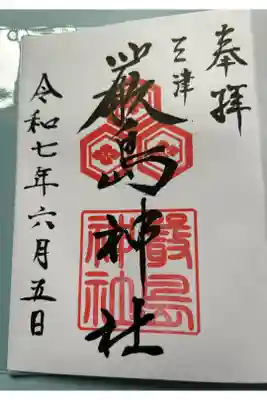 奉拝
三津
厳島神社
嚴島
神社
令和七年六月五日